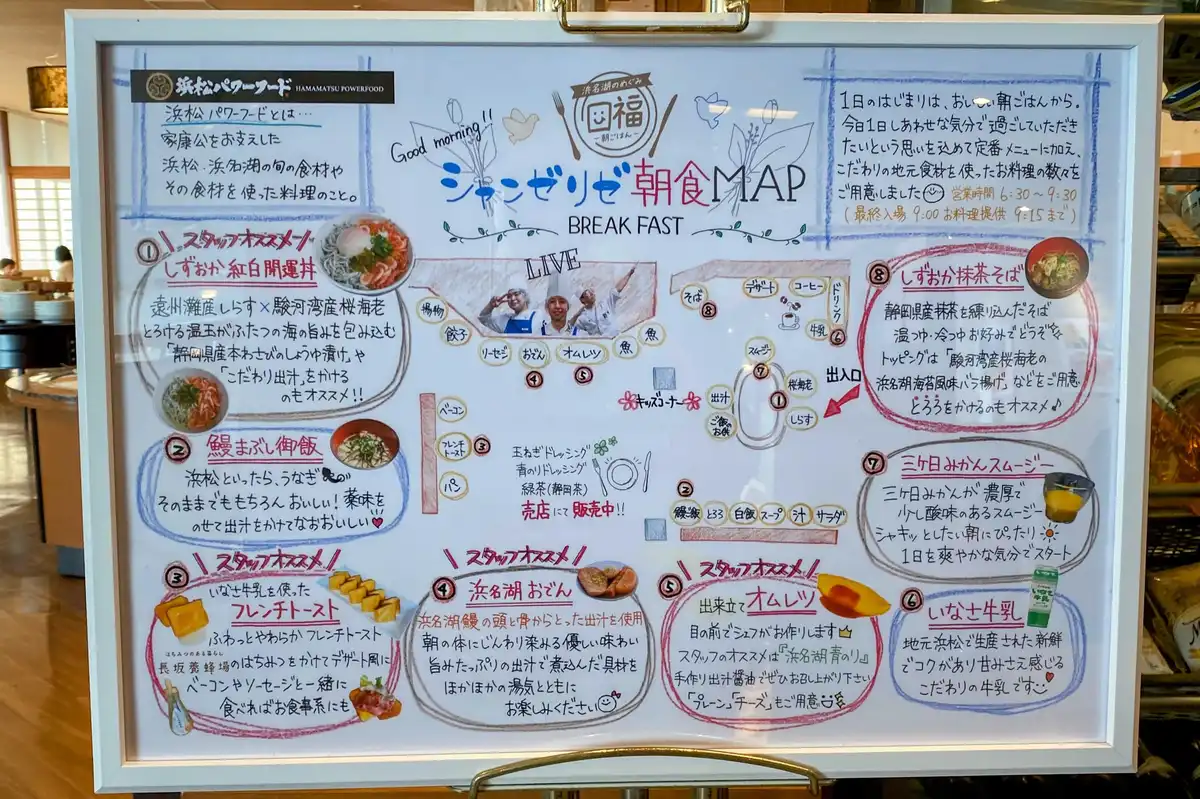 浜松パワーフード HAMAMATSU POWERFOOD
浜松パワーフードとは…
家康公をお支えした
浜松・浜名湖の旬の食材や
その食材を使った料理のこと。
Good morning!!
浜名湖のめぐみ
福
朝ごはん
シャンゼリゼ朝食MAP
BREAK FAST
1日のはじまりは、おいしい朝ごはんから。
今日1日しあわせな気分で過ごしていただき
たいという思いを込めて定番メニューに加え、
こだわりの地元食材を使ったお料理の数々を
ご用意しました 営業時間 6:30〜9:30
(最終入場 9:00 お料理提供 9:15まで)
① \スタッフオススメ!/
しずおか紅白開運丼
遠州灘産しらす×駿河湾産桜海老
とろける温玉がふたつの海の旨みを包み込む
「静岡県産本わさびのしょうゆ漬け」や
「こだわり出汁」をかける
のもオススメ!!
② 鰻まぶし御飯
浜松といったら、うなぎ
そのままでももちろんおいしい!薬味を
のせて出汁をかけてなおおいしい
LIVE
揚物
餃子
ソーセージ
おでん
④
オムレツ
⑤
魚
魚
そば
⑧
デザート
コーヒー
ドリンク
牛乳
⑥
スムージー
⑦
出汁
ご飯のお供
①
桜海老
しらす
出入口
キッズコーナー
ベーコン
フレンチトースト
③
パン
玉ねぎドレッシング
青のりドレッシング
緑茶(静岡茶)
売店にて販売中!!
②
鰻ご飯
とろろ
白飯
スープ
汁
サラダ
⑧ しずおか抹茶そば
静岡県産抹茶を練り込んだそば
温つゆ・冷つゆお好みでどうぞ
トッピングは「駿河湾産桜海老の
浜名湖海苔風味バラ揚げ」などをご用意
とろろをかけるのもオススメ♪
⑦ 三ケ日みかんスムージー
三ケ日みかんが濃厚で
少し酸味のあるスムージー
シャキッとしたい朝にぴったり
1日を爽やかな気分でスタート
③ \スタッフオススメ!/
いなさ牛乳を使った
フレンチトースト
ふわっとやわらかフレンチトースト
はちみつのある暮らし
長坂養蜂場のはちみつをかけてデザート風に
ベーコンやソーセージと一緒に
食べればお食事系にも
\スタッフオススメ!/
④ 浜名湖おでん
浜名湖鰻の頭と骨からとった出汁を使用
朝の体にじんわり染みる優しい味わい
旨みたっぷりの出汁で煮込んだ具材を
ほかほかの湯気とともに
お楽しみください
\スタッフオススメ!/
⑤ 出来立てオムレツ
目の前でシェフがお作りします
スタッフのオススメは『浜名湖青のり』
手作り出汁醤油でぜひお召し上がり下さい
「プレーン」「チーズ」もご用意
⑥ いなさ牛乳
地元浜松で生産された新鮮
でコクがあり甘みさえ感じる
こだわりの牛乳です